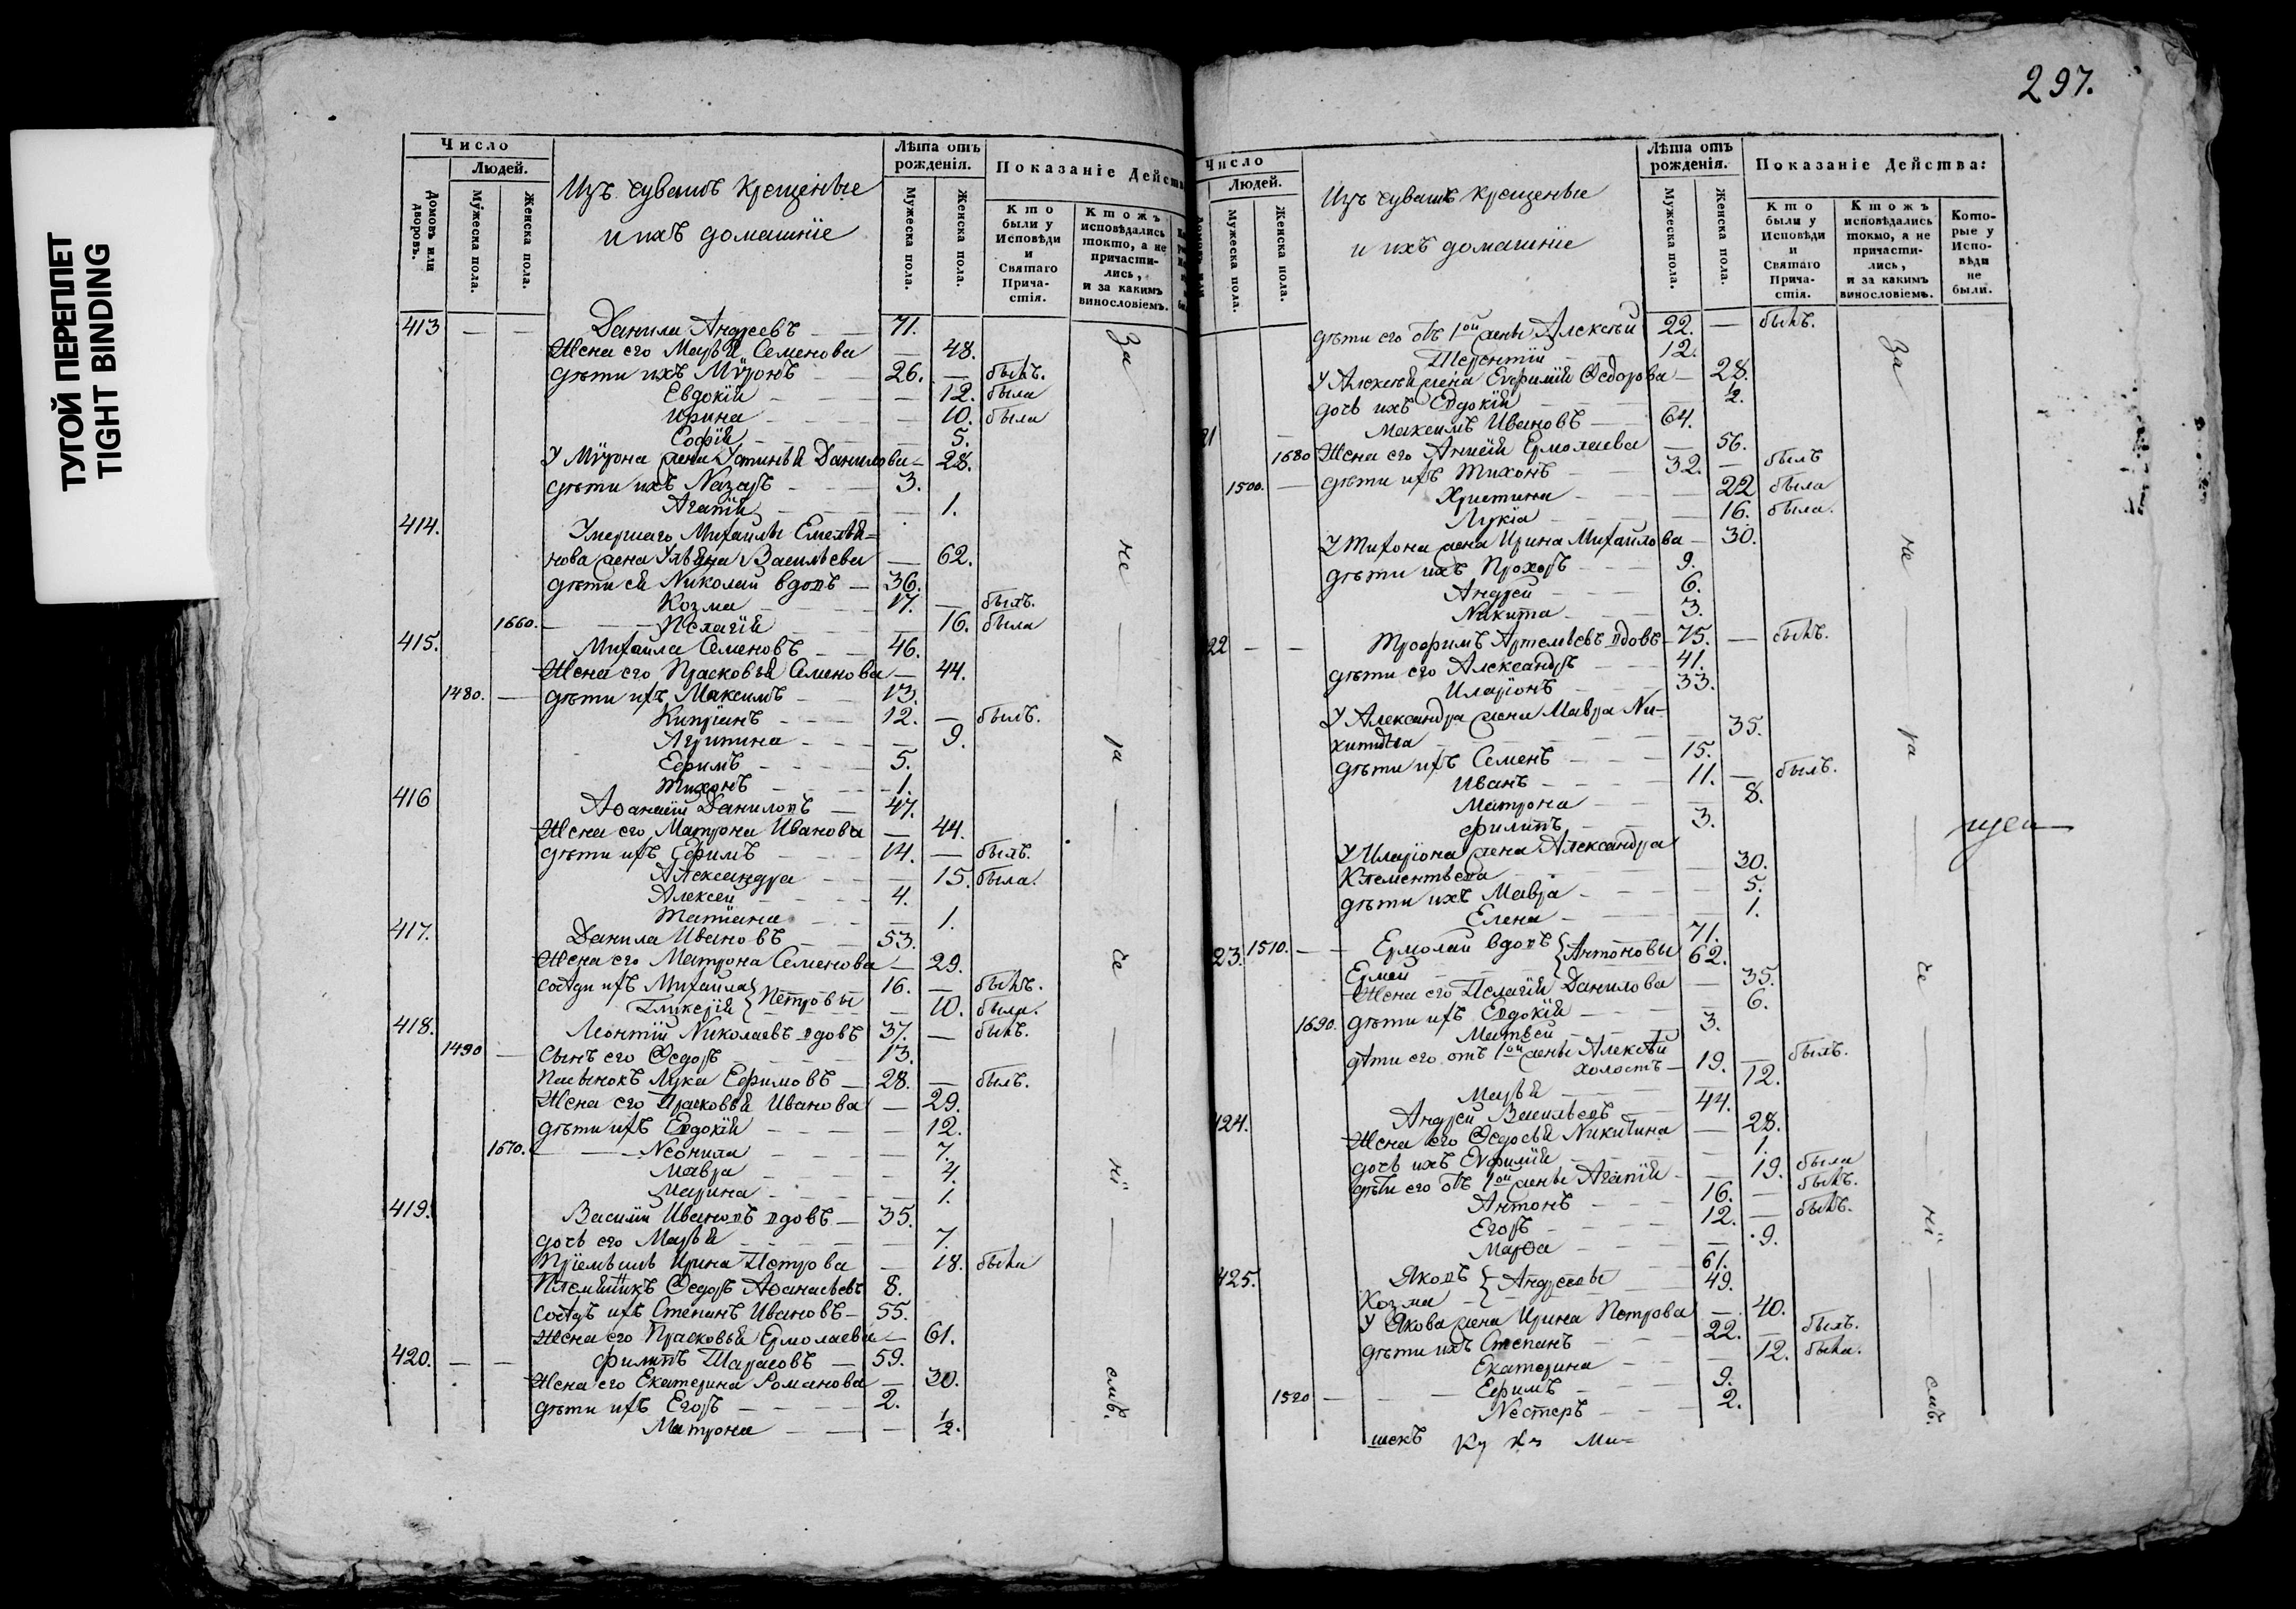 ТУГОЙ ПЕРЕПЛЕТ
TIGHT BINDING
Число
Людей.
Домовъ или дворовъ.
Мужеска пола.
Женска пола.
Изъ чувашъ крещеные
и ихъ домашніе
Лѣта отъ рожденія.
Мужеска пола.
Женска пола.
Показаніе Дейст
Кто были у Исповѣди и Святаго Причастія.
Ктожъ исповѣдались токмо, а не причастились, и за какимъ винословіемъ.
413 — — Данила Андреевъ — 71.
Жена его Марья Семенова — 48.
дѣти ихъ Мѵронъ — 26. — былъ.
Евдокія — 12. была
Ирина — 10. была
Софія — 5.
У Мѵрона жена Устинья Данилова — 28.
дѣти ихъ Назаръ — 3.
Агапія — 1.
414. Умершаго Михайлы Емелья=
нова жена Ульяна Васильева — 62.
дѣти ея Николай вдовъ — 36.
Козма — 17. — былъ.
1660. — Пелагія — 16. была
415. Михайла Семеновъ — 46.
Жена его Прасковья Семенова — 44.
1480. — дѣти ихъ Максимъ — 13.
Кипріанъ — 12. — былъ.
Агрипина — 9.
Ефимъ — 5.
Тихонъ — 1.
416 Аѳанасій Даниловъ — 47.
Жена его Матрона Иванова — 44.
дѣти ихъ Ефимъ — 14. — былъ.
Александра — 15. была.
Алексей — 4.
Татіана — 1.
417. Данила Ивановъ — 53.
Жена его Матрона Семенова — 29.
сосѣди ихъ Михайла 16. — былъ.
Гликерія } Петровы — 10. была.
418. Леонтій Николаевъ вдовъ 37. — былъ.
1490 — Сынъ его Ѳедоръ — 13.
Пасынокъ Лука Ефимовъ — 28. — былъ.
Жена его Прасковья Иванова — 29.
дѣти ихъ Евдокія — 12.
1670. — Неонила — 7.
Мавра — 4.
Марина — 1.
419. Василій Ивановъ вдовъ — 35.
дочь его Марья — 7.
Пріемышъ Ирина Петрова — 18. была
Племянникъ Ѳедоръ Аѳанасьевъ 8.
сосѣдъ ихъ Степанъ Ивановъ — 55.
Жена его Прасковья Ермолаева — 61.
420. — — Филипъ Тарасовъ — 59.
Жена его Екатерина Романова — 30.
дѣти ихъ Егоръ — 2.
Матрона — 1/2.
За не ра че ні емъ.
297.
Число
Людей.
Мужеска пола.
Женска пола.
Изъ чувашъ крещеные
и ихъ домашніе
Лѣта отъ рожденія.
Мужеска пола.
Женска пола.
Показаніе Действа:
Кто были у Исповѣди и Святаго Причастія.
Ктожъ исповѣдались токмо, а не причастились, и за какимъ винословіемъ.
Которые у Исповѣди не были.
дѣти его отъ 1ой жены Алексѣй 22. — былъ.
Терентій — 12.
У Алексѣя жена Евфимія Ѳедорова — 28.
дочь ихъ Евдокія — 2.
21 Максимъ Ивановъ — 64.
1680 Жена его Анисія Ермолаева — 56.
1500. — дѣти ихъ Тихонъ — 32. — былъ
Христина — 22 была
Лукіа — 16. была.
У Тихона жена Ирина Михайлова — 30.
дѣти ихъ Прохоръ — 9.
Андрей — 6.
Никита — 3.
22 — — Трофимъ Артемьевъ вдовъ — 75. — былъ.
дѣти его Александръ — 41.
Иларіонъ — 33.
У Александра жена Мавра Ни-
китишна — 35.
дѣти ихъ Семенъ — 15.
Иванъ — 11. — былъ.
Матрона — 8.
Филипъ — 3.
У Иларіона жена Александра
Клементьева — 30.
дѣти ихъ Мавра — 5.
Елена — 1.
23. 1510. — Ермолай вдовъ } Антоновы 71.
Ермей 62.
Жена его Пелагія Данилова — 35.
1690. дѣти ихъ Евдокія — 6.
Матвей — 3.
дѣти его отъ 1ой жены Алексѣй
холостъ — 19. — былъ.
Марья — 12.
424. Андрей Васильевъ — 44.
Жена его Ѳедосья Никитина — 28.
дочь ихъ Евфимія — 1.
дѣти его отъ 1ой жены Агапія — 19. была
Антонъ — 16. — былъ.
Егоръ — 12. — былъ.
Марѳа — 9.
425. Яковъ } Андреевы 61.
Козма 49.
У Якова жена Ирина Петрова — 40.
дѣти ихъ Степанъ — 22. — былъ.
Екатерина — 12. была.
1520 — Ефимъ — 9.
Нестеръ — 2.
За не ра че ні емъ.